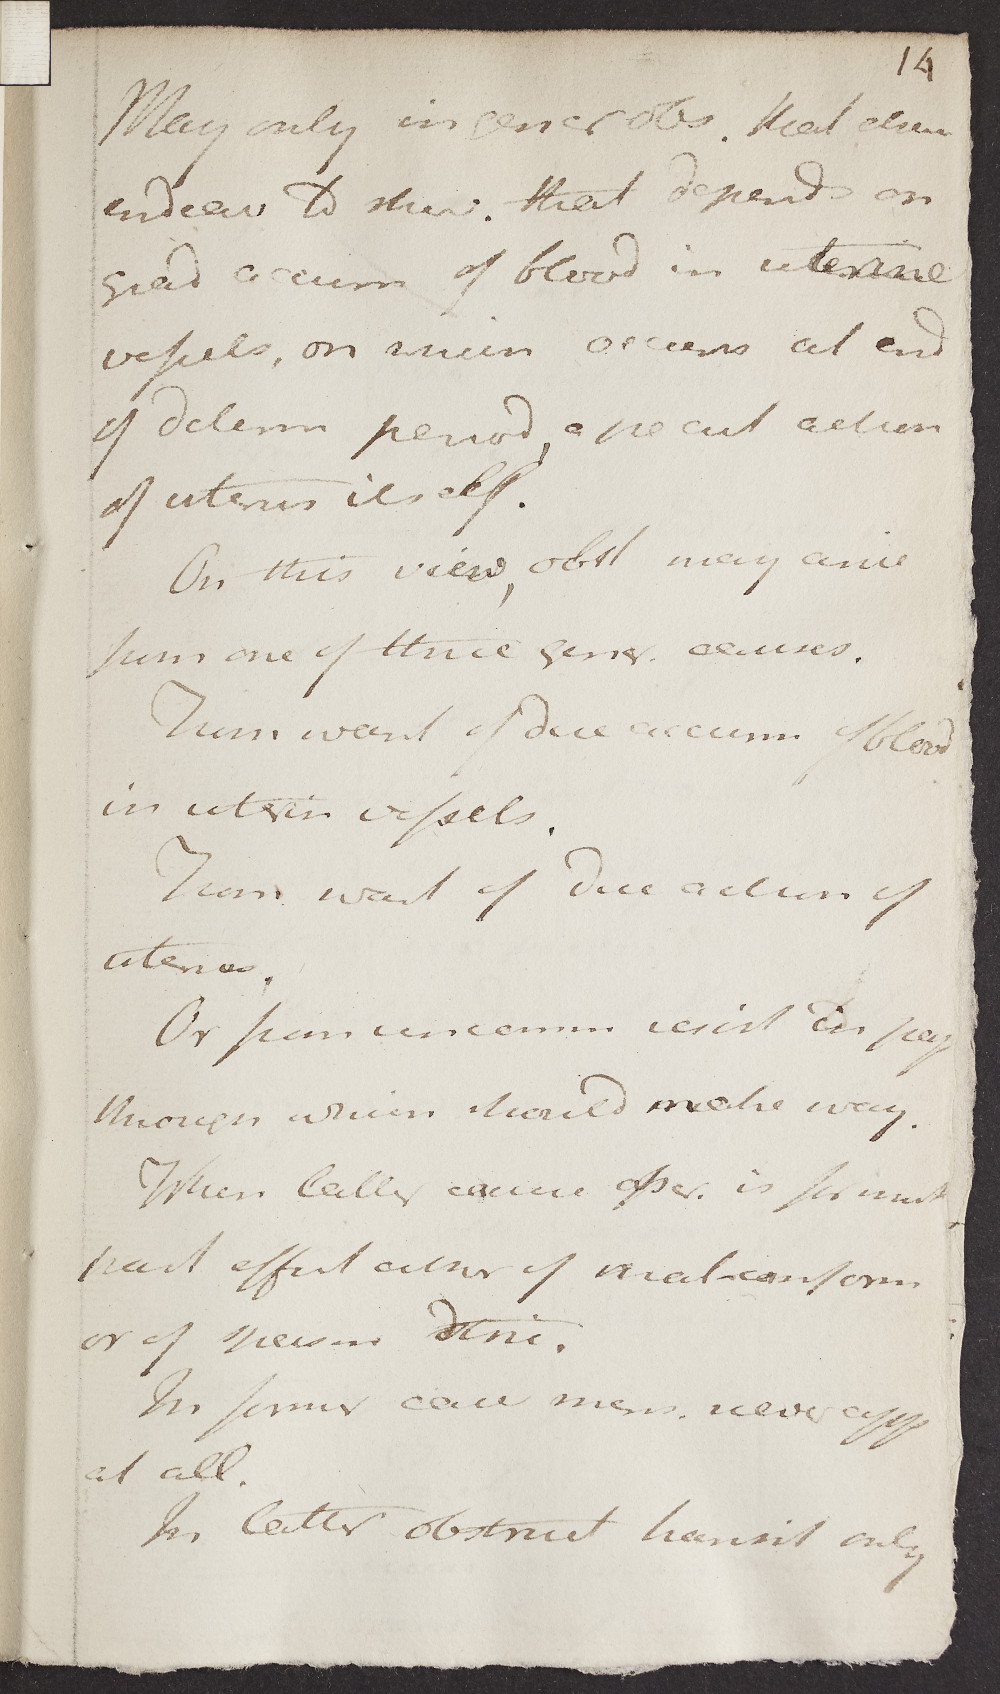 14
May only in gener obs. that
endeav to shew. that depends on
grad accum of blood in uterine
vessels, on which occurs at end
of determ period, a peculi action
of uterus itself.
On this view, obst may arise
from one of three gener. causes.
From want of due accum of blood
in uterin vessels.
From want of due action of
uterus.
Or from uncomm resist in pass
through which should make way.
When latter cause oper. is for most
part effect either of mal-conform
or of spasm stric.
In former case mens. never app
at all.
In latter obstruct transit only